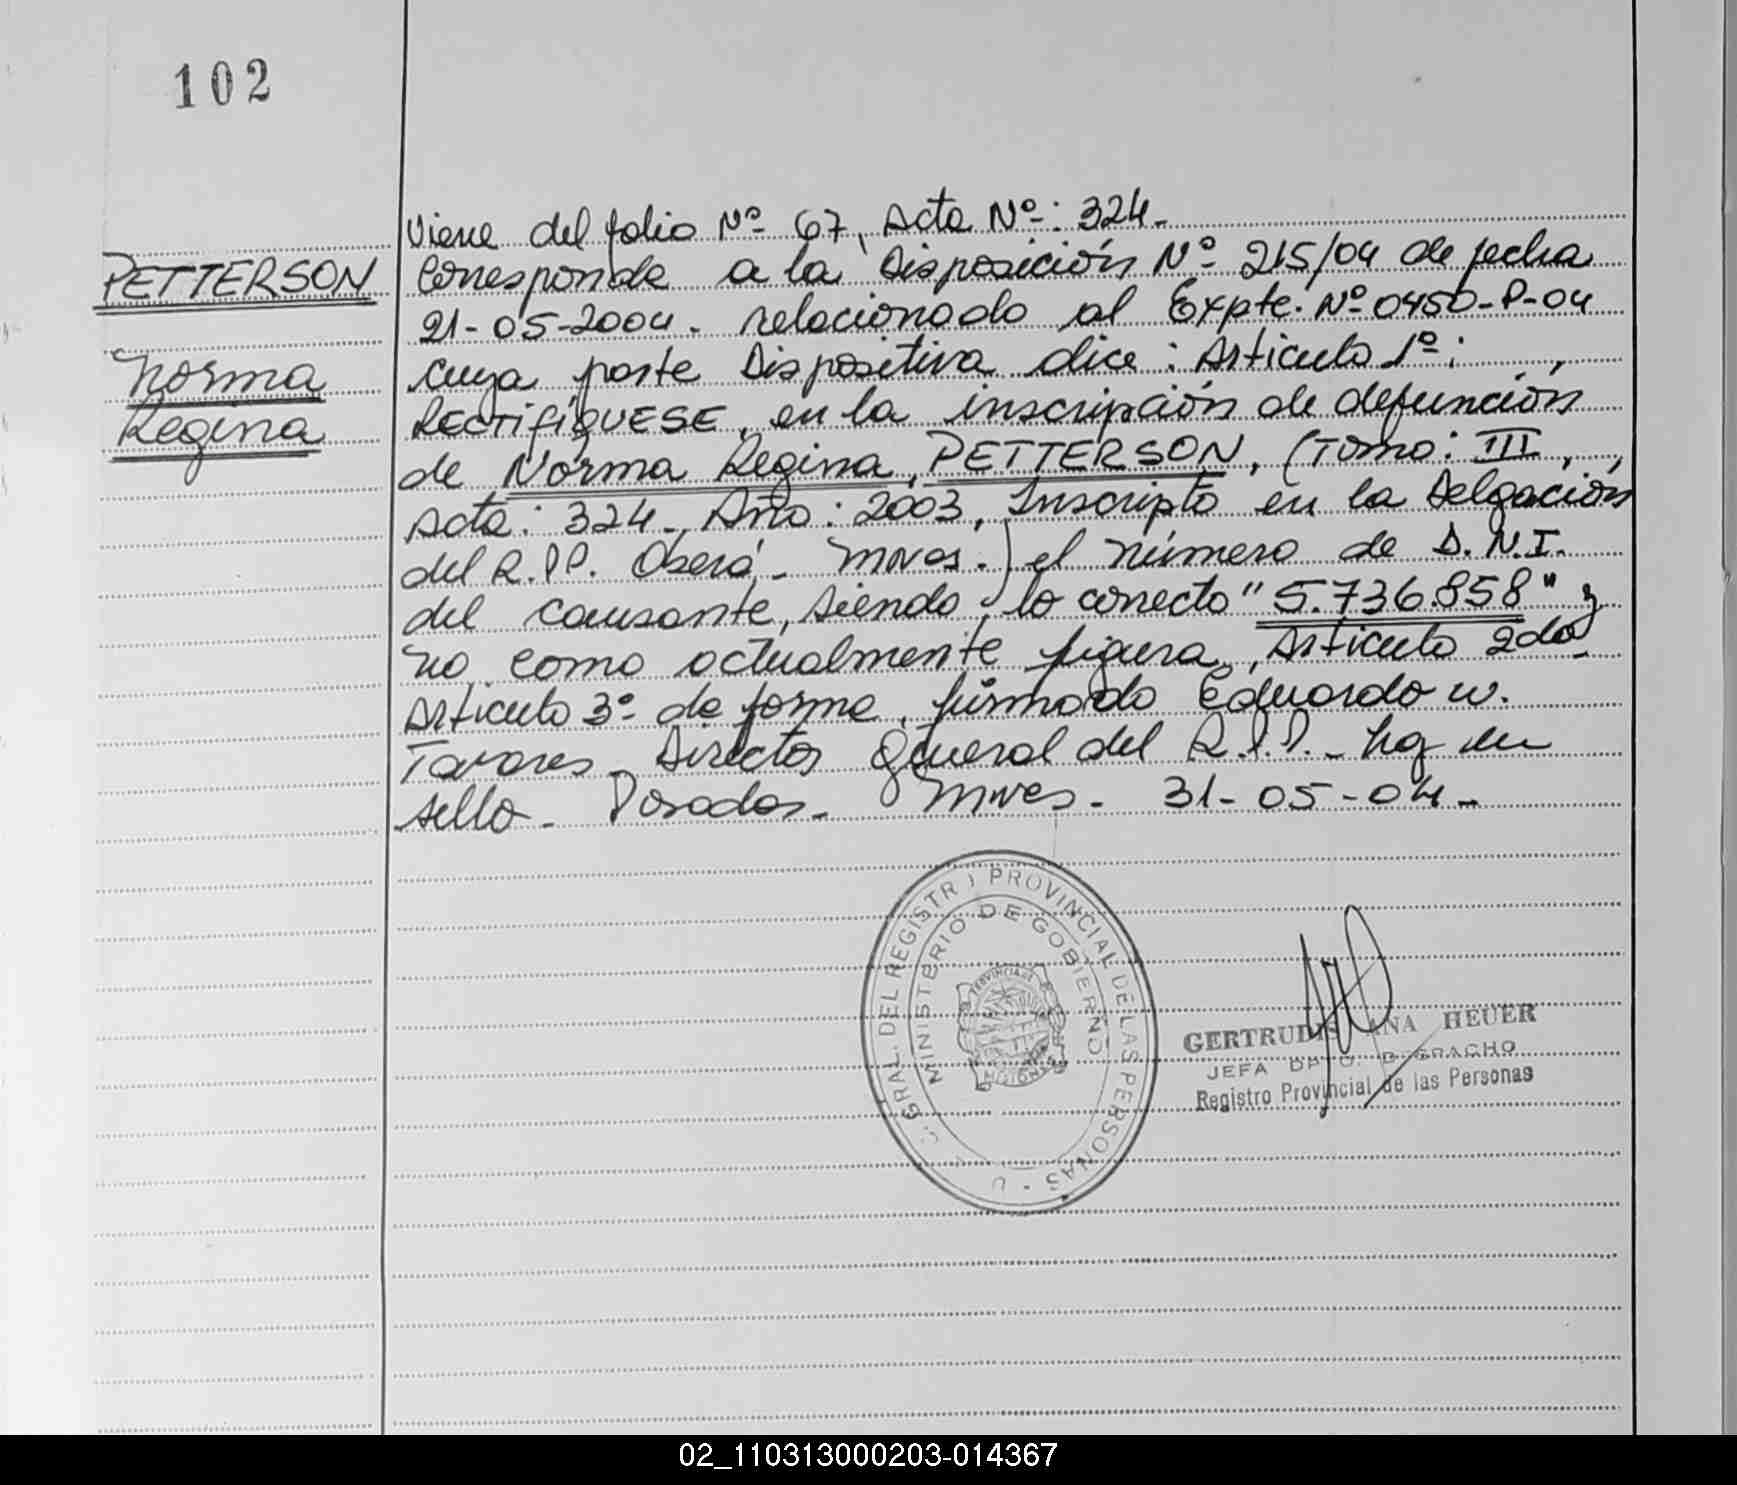 102
PETTERSON
Norma
Regina
Viene del folio Nº 67, Acta Nº: 324.
Corresponde a la Disposición Nº 215/04 de fecha
21-05-2004. relacionado al Expte. Nº 0450-P-04
cuya parte Dispositiva dice: Articulo 1º:
RECTIFIQUESE, en la inscripción de defunción
de Norma Regina, PETTERSON, (Tomo: III,
Acta: 324. Año: 2003, Inscripto en la Delgación
del R.P.P. Oberá - Mnes.) el número de D.N.I.
del causante, siendo lo correcto "5.736.858" y
no como actualmente figura, Articulo 2do
Articulo 3º de forma, firmado Eduardo W.
Tavares Director General del R.P.P. - hay un
sello - Posadas - Mnes - 31-05-04 -
GRAL. DEL REGISTR PROVINCIAL DE LAS PERSONAS
MINISTERIO DE GOBIERNO
PROVINCIA DE
MISIONES
GERTRUDIS ANA HEUER
JEFA DPTO.
Registro Provincial de las Personas
02_110313000203-014367